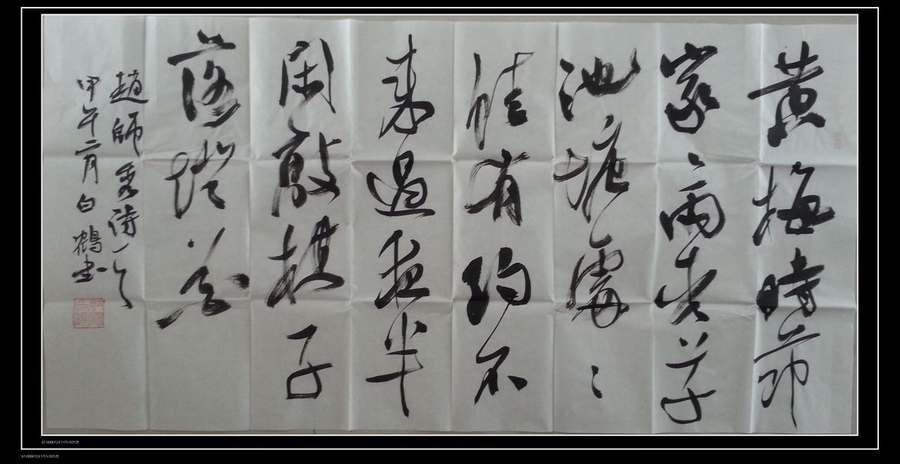 黄梅時節
家〻雨青草
池塘處〻
蛙有約不
来過夜半
閑敲棋子
落燈花
趙師秀詩一首
甲午二月白鶴書